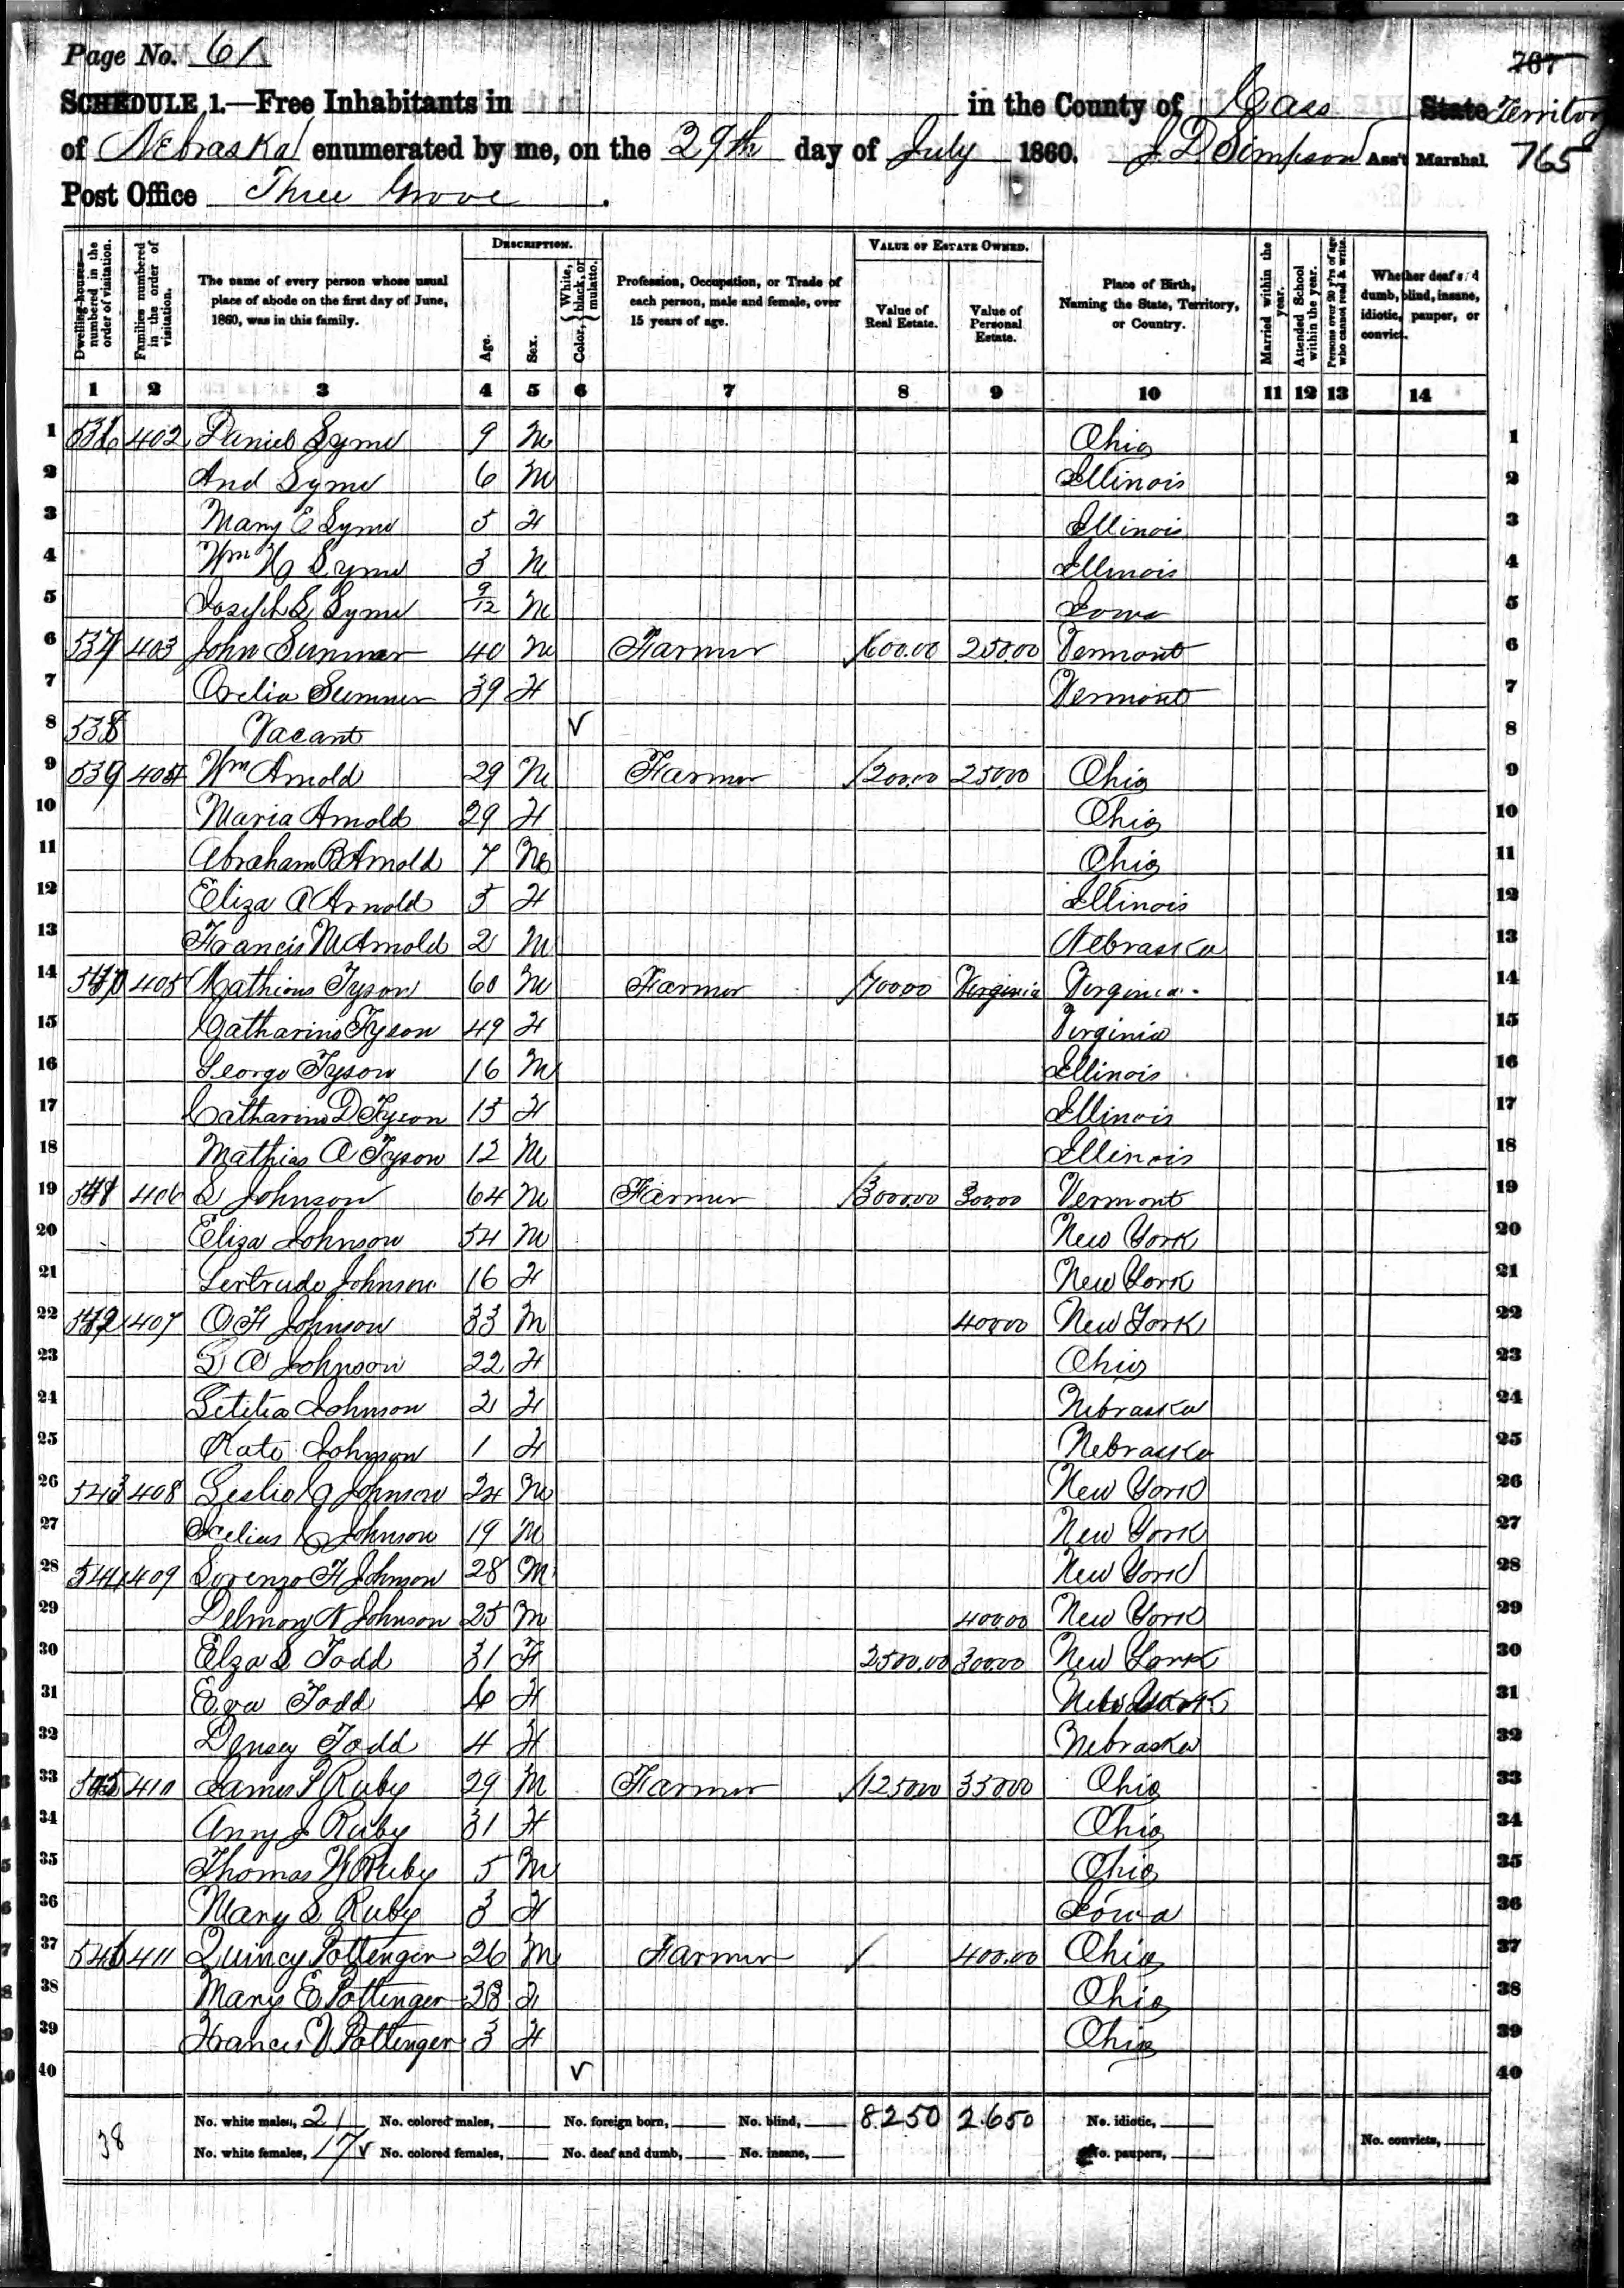 Page No. 61
707
SCHEDULE 1.—Free Inhabitants in in the County of Cass State Territory
of Nebraska enumerated by me, on the 29th day of July 1860. J D Simpson Ass't Marshal. 765
Post Office Three Grove.
Dwelling-houses—numbered in the order of visitation.
Families numbered in the order of visitation.
The name of every person whose usual place of abode on the first day of June, 1860, was in this family.
DESCRIPTION.
Age.
Sex.
Color, White, black, or mulatto.
Profession, Occupation, or Trade of each person, male and female, over 15 years of age.
VALUE OF ESTATE OWNED.
Value of Real Estate.
Value of Personal Estate.
Place of Birth, Naming the State, Territory, or Country.
Married within the year.
Attended School within the year.
Persons over 20 y'rs of age who cannot read & write.
Whether deaf and dumb, blind, insane, idiotic, pauper, or convict.
1 2 3 4 5 6 7 8 9 10 11 12 13 14
1 536 402 Daniel Syme 9 M Ohio 1
2 And Syme 6 M Illinois 2
3 Mary E Syme 5 F Illinois 3
4 Wm Syme 3 M Illinois 4
5 Joseph S Syme 9/12 M Iowa 5
6 537 403 John Sumner 40 M Farmer 600.00 250.00 Vermont 6
7 Orelia Sumner 39 F Vermont 7
8 538 Vacant √ 8
9 539 404 Wm Arnold 29 M Farmer 1200.00 250.00 Ohio 9
10 Maria Arnold 29 F Ohio 10
11 Abraham B Arnold 7 M Ohio 11
12 Eliza A Arnold 5 F Illinois 12
13 Francis M Arnold 2 M Nebraska 13
14 540 405 Mathious Tyson 60 M Farmer 700.00 Virginia Virginia 14
15 Catharine Tyson 49 F Virginia 15
16 George Tyson 16 M Illinois 16
17 Catharine D Tyson 15 F Illinois 17
18 Mathias A Tyson 12 M Illinois 18
19 541 406 S Johnson 64 M Farmer 3000.00 300.00 Vermont 19
20 Eliza Johnson 54 M New York 20
21 Gertrude Johnson 16 F New York 21
22 542 407 O F Johnson 33 M 400.00 New York 22
23 S A Johnson 22 F Ohio 23
24 Letitia Johnson 2 F Nebraska 24
25 Kate Johnson 1 F Nebraska 25
26 543 408 Leslie G Johnson 24 M New York 26
27 C Johnson 19 M New York 27
28 544 409 Lorenzo F Johnson 28 M New York 28
29 Delmon N Johnson 25 M 400.00 New York 29
30 Elza S Todd 31 F 2500.00 300.00 New York 30
31 Eva Todd 6 F New York 31
32 Densey Todd 4 F Nebraska 32
33 545 410 James P Ruby 29 M Farmer 1250.00 350.00 Ohio 33
34 Anny J Ruby 31 F Ohio 34
35 Thomas W Ruby 5 M Ohio 35
36 Mary S Ruby 3 F Iowa 36
37 546 411 Quincy Pottenger 26 M Farmer 400.00 Ohio 37
38 Mary E Pottenger 23 F Ohio 38
39 Francis V Pottenger 3 F Ohio 39
40 √ 40
38
No. white males, 21 No. colored males, No. foreign born, No. blind, 8.250 2.650 No. idiotic,
No. white females, 17 √ No. colored females, No. deaf and dumb, No. insane, No. paupers, No. convicts,